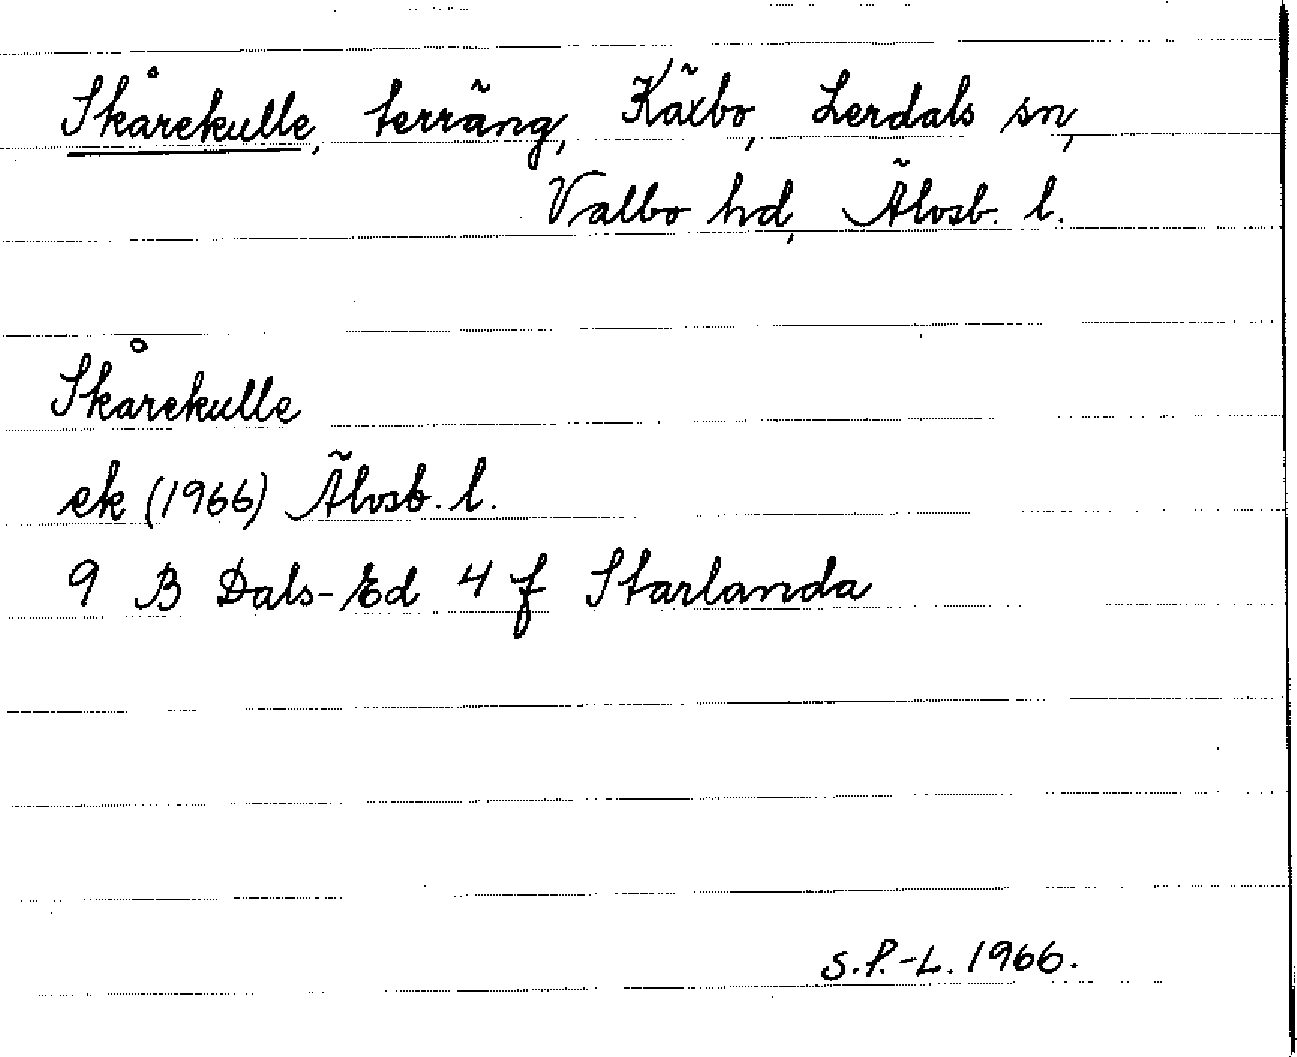 Skårekulle, terräng, Käxbo, Lerdals sn,
Valbo hd, Älvsb. l.
Skårekulle
ek (1966) Älvsb. l.
9 B Dals-Ed 4 f Starlanda
S.P.-L. 1966.